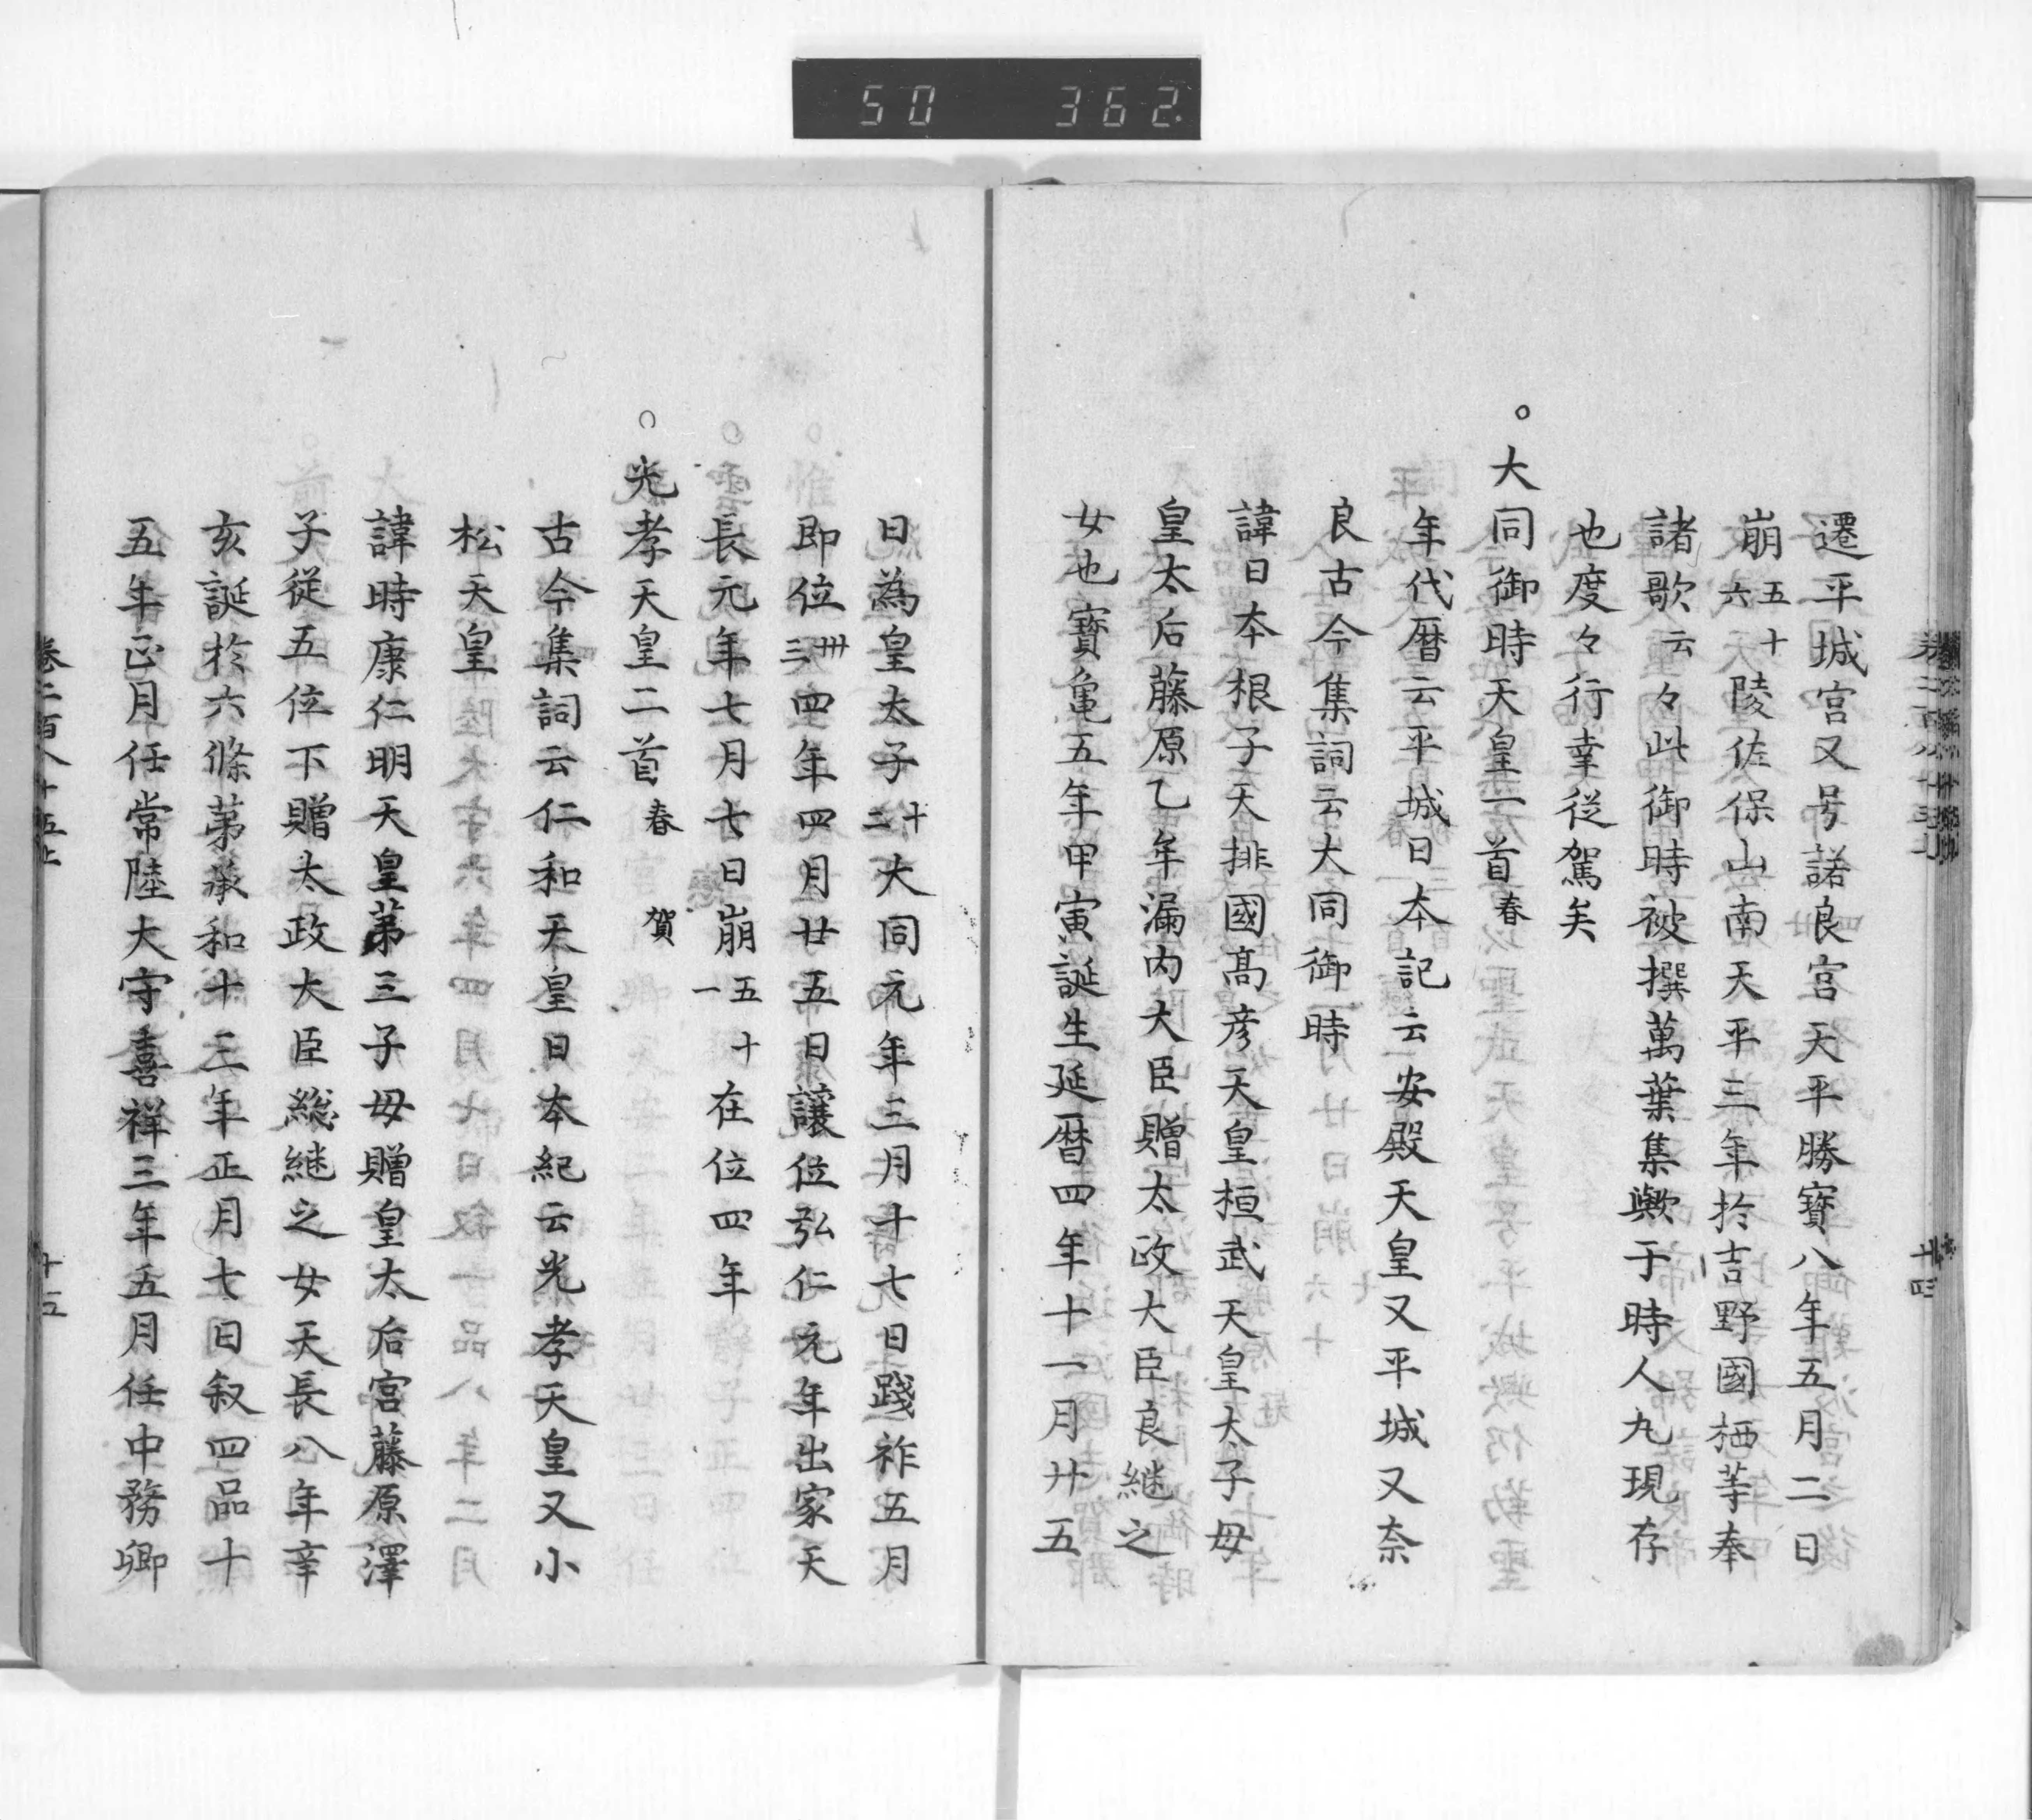 50 362
遷平城宮又号諾良宮天平勝寳八年五月二日
崩五十六天陵佐保山南天平三年於吉野國栖等奉
諸歌云々此御時被撰萬葉集歟于時人丸現存
也度々行幸従駕矣
。大同御時天皇一首春
年代暦云平城日本記云安殿天皇又平城又奈
良古今集詞云大同御時
諱日本根子天排國髙彦天皇桓武天皇大子母
皇太后藤原乙牟漏内大臣贈太政大臣良継之
女也寳亀五年甲寅誕生延暦四年十一月廿五
日為皇太子十二大同元年三月十七日踐祚五月
即位卅三四年四月廿五日讓位弘仁元年出家天
長元年七月七日崩五十一在位四年
○光孝天皇二首春 賀
古今集詞云仁和天皇日本紀云光孝天皇又小
松天皇
諱時康仁明天皇第三子母贈皇太后宮藤原澤
子従五位下贈太政大臣総継之女天長八年辛
亥誕於六條苐承和十三年正月七日叙四品十
五年正月任常陸大守喜祥三年五月任中務卿
巻二百八十五上
十五